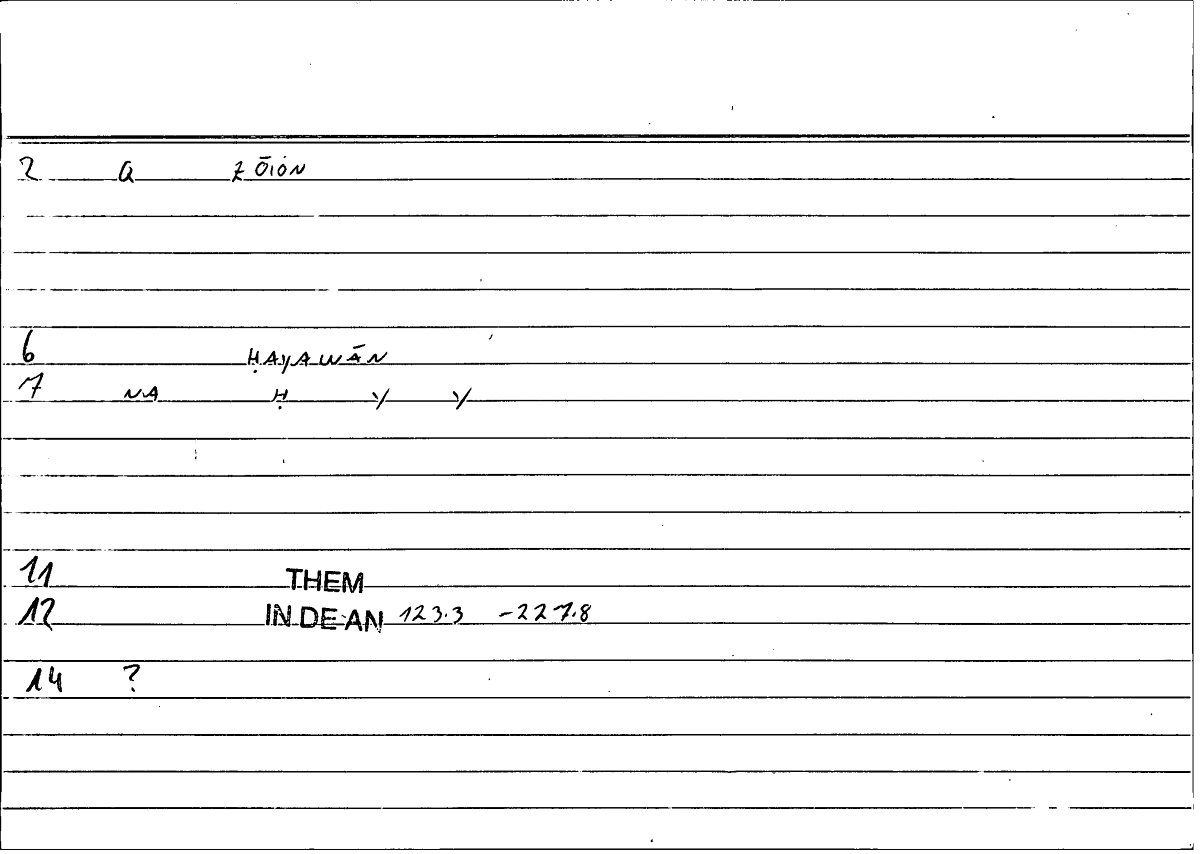 2 Q ZŌIÓN
6 ḤAYAWĀN
7 NA Ḥ Y Y
11 THEM
12 IN DE AN 123.3 -227.8
14 ?